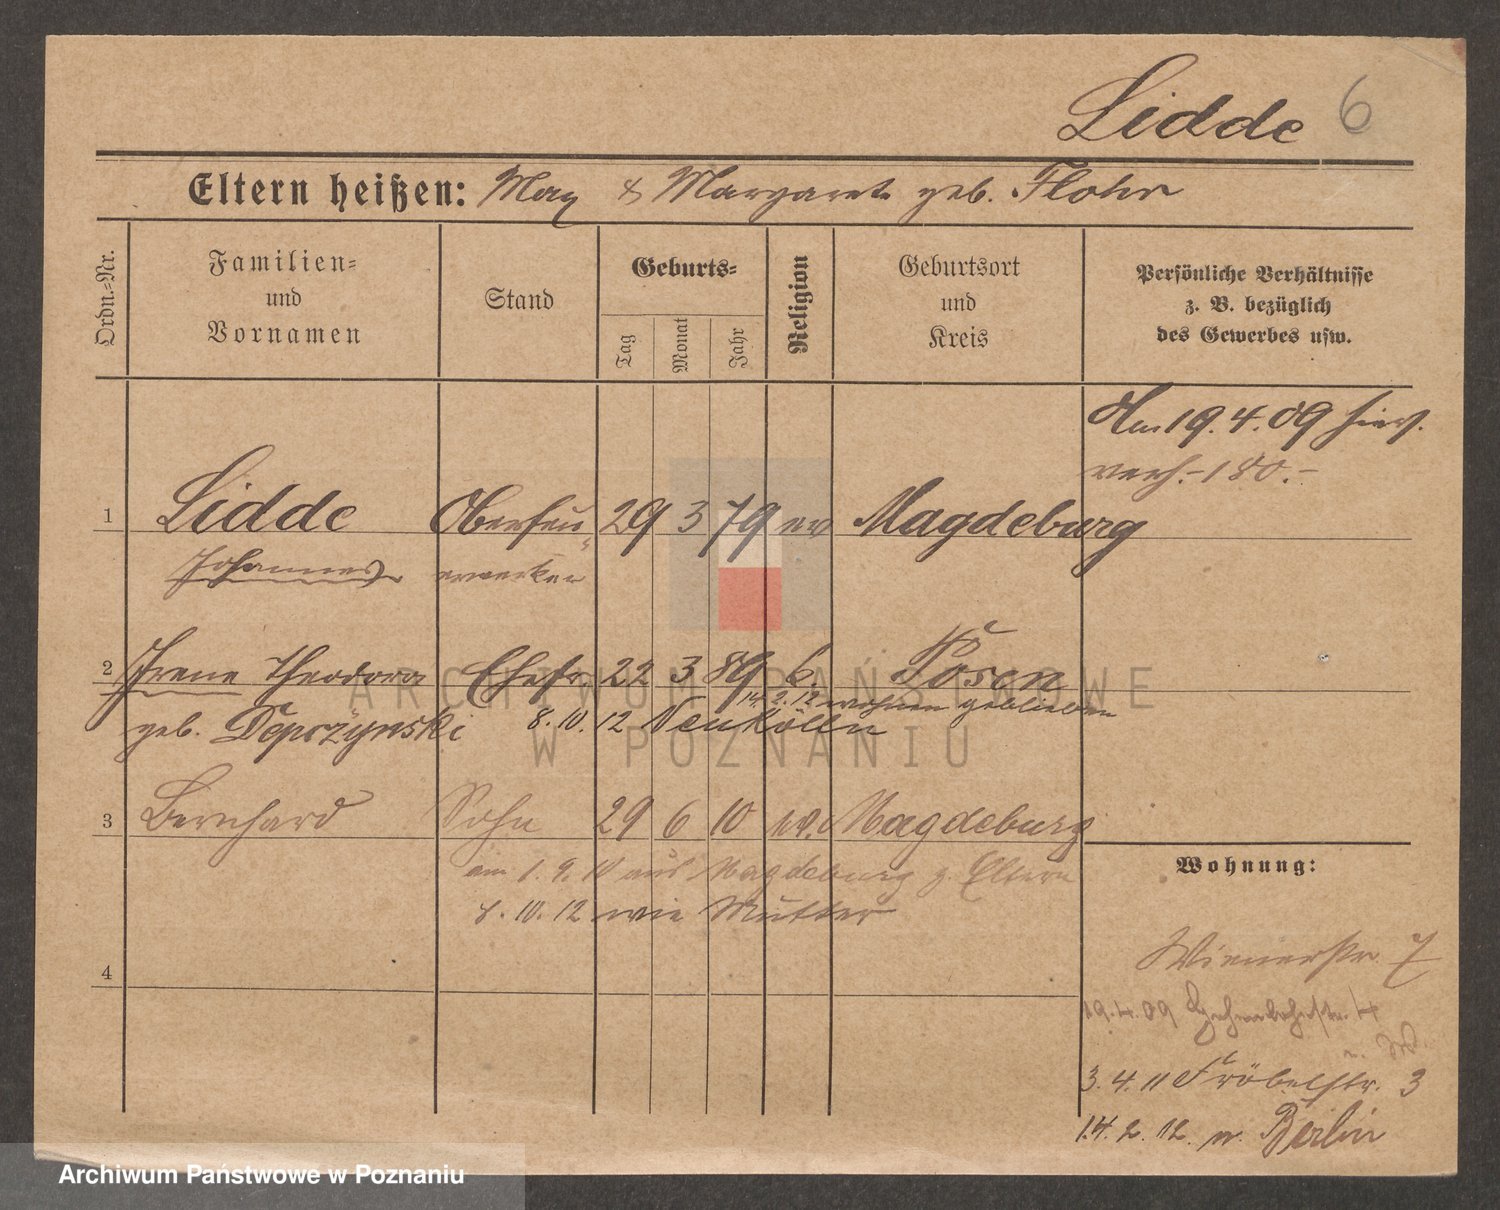 Lidde 6
Eltern heißen: Max & Margarete geb. Flohr
Ordn.-Nr.
Familien-
und
Vornamen
Stand
Geburts-
Tag
Monat
Jahr
Religion
Geburtsort
und
Kreis
Persönliche Verhältnisse
z. B. bezüglich
des Gewerbes usw.
Am 19.4.09 hier
verh. - 180.-
1 Lidde Oberfeu- 29 3 79 ev Magdeburg
Johannes erwerker
2 Irene Theodora Ehefr. 22 3 89 k. Posen
14.2.12 wohnen geblieben
geb. Depczynski 8.10.12 Neukölln
3 Bernhard Sohn 29 6 10 ev. Magdeburg
am 1.9.10 aus Magdeburg z. Eltern
8.10.12 wie Mutter
4
Wohnung:
Wienerstr. 7
19.4.09 4
3.4.11 Fröbelstr. 3
14.2.12 n. Berlin
ARCHIWUM PAŃSTWOWE
W POZNANIU
Archiwum Państwowe w Poznaniu